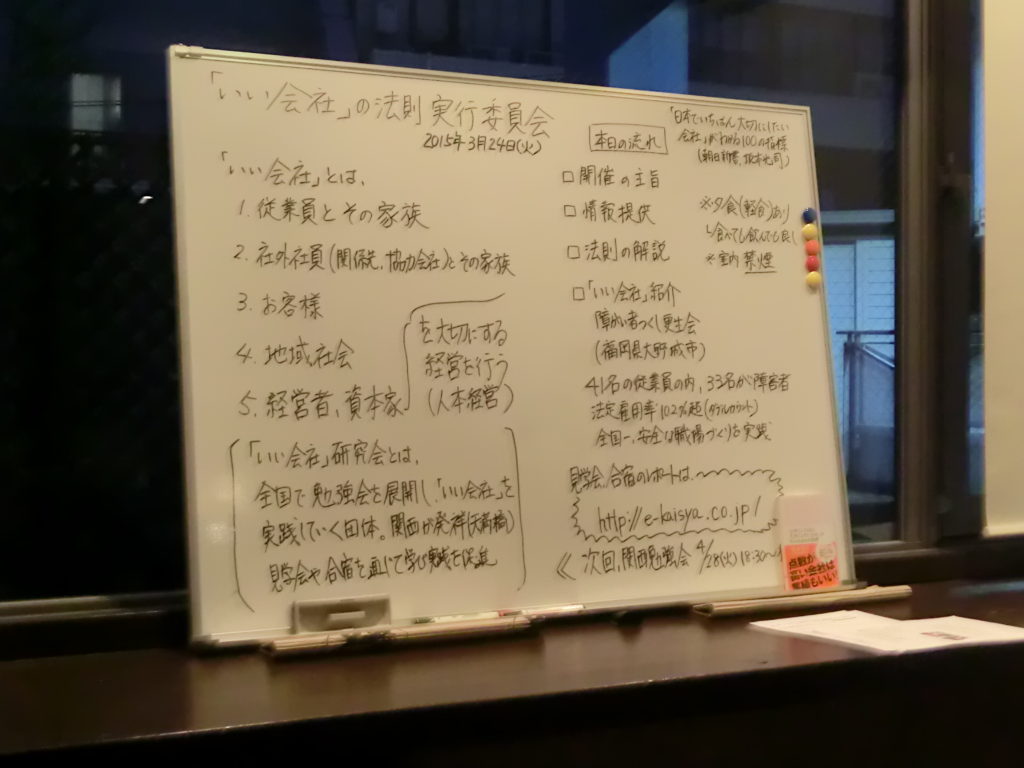 「いい会社」の法則 実行委員会
2015年3月24日(火)
「いい会社」とは、
1. 従業員とその家族
2. 社外社員(関係先、協力会社)とその家族
3. お客様
4. 地域社会
5. 経営者、資本家
を大切にする
経営を行う
(人本経営)
「いい会社」研究会とは、
全国で勉強会を展開し、「いい会社」を
実践していく団体。関西が発祥(天満橋)
見学会や合宿を通じて学び実践を促進
本日の流れ
「日本でいちばん大切にしたい
会社」がわかる100の指標
(朝日新書、坂本光司)
□ 開催の主旨
□ 情報提供
□ 法則の解説
□「いい会社」紹介
障がい者つくし更生会
(福岡県大野城市)
41名の従業員の内、33名が障害者
法定雇用率102%超(ダブルカウント)
全国一、安全な職場づくりを実践
※夕食(軽食)あり
↳食べても飲んでも良し
※室内 禁煙
見学会、合宿のレポートは、
http://e-kaisya.co.jp/
≪ 次回、関西勉強会 4/28(火) 18:30〜
点数が
高い会社は
業績もいい!